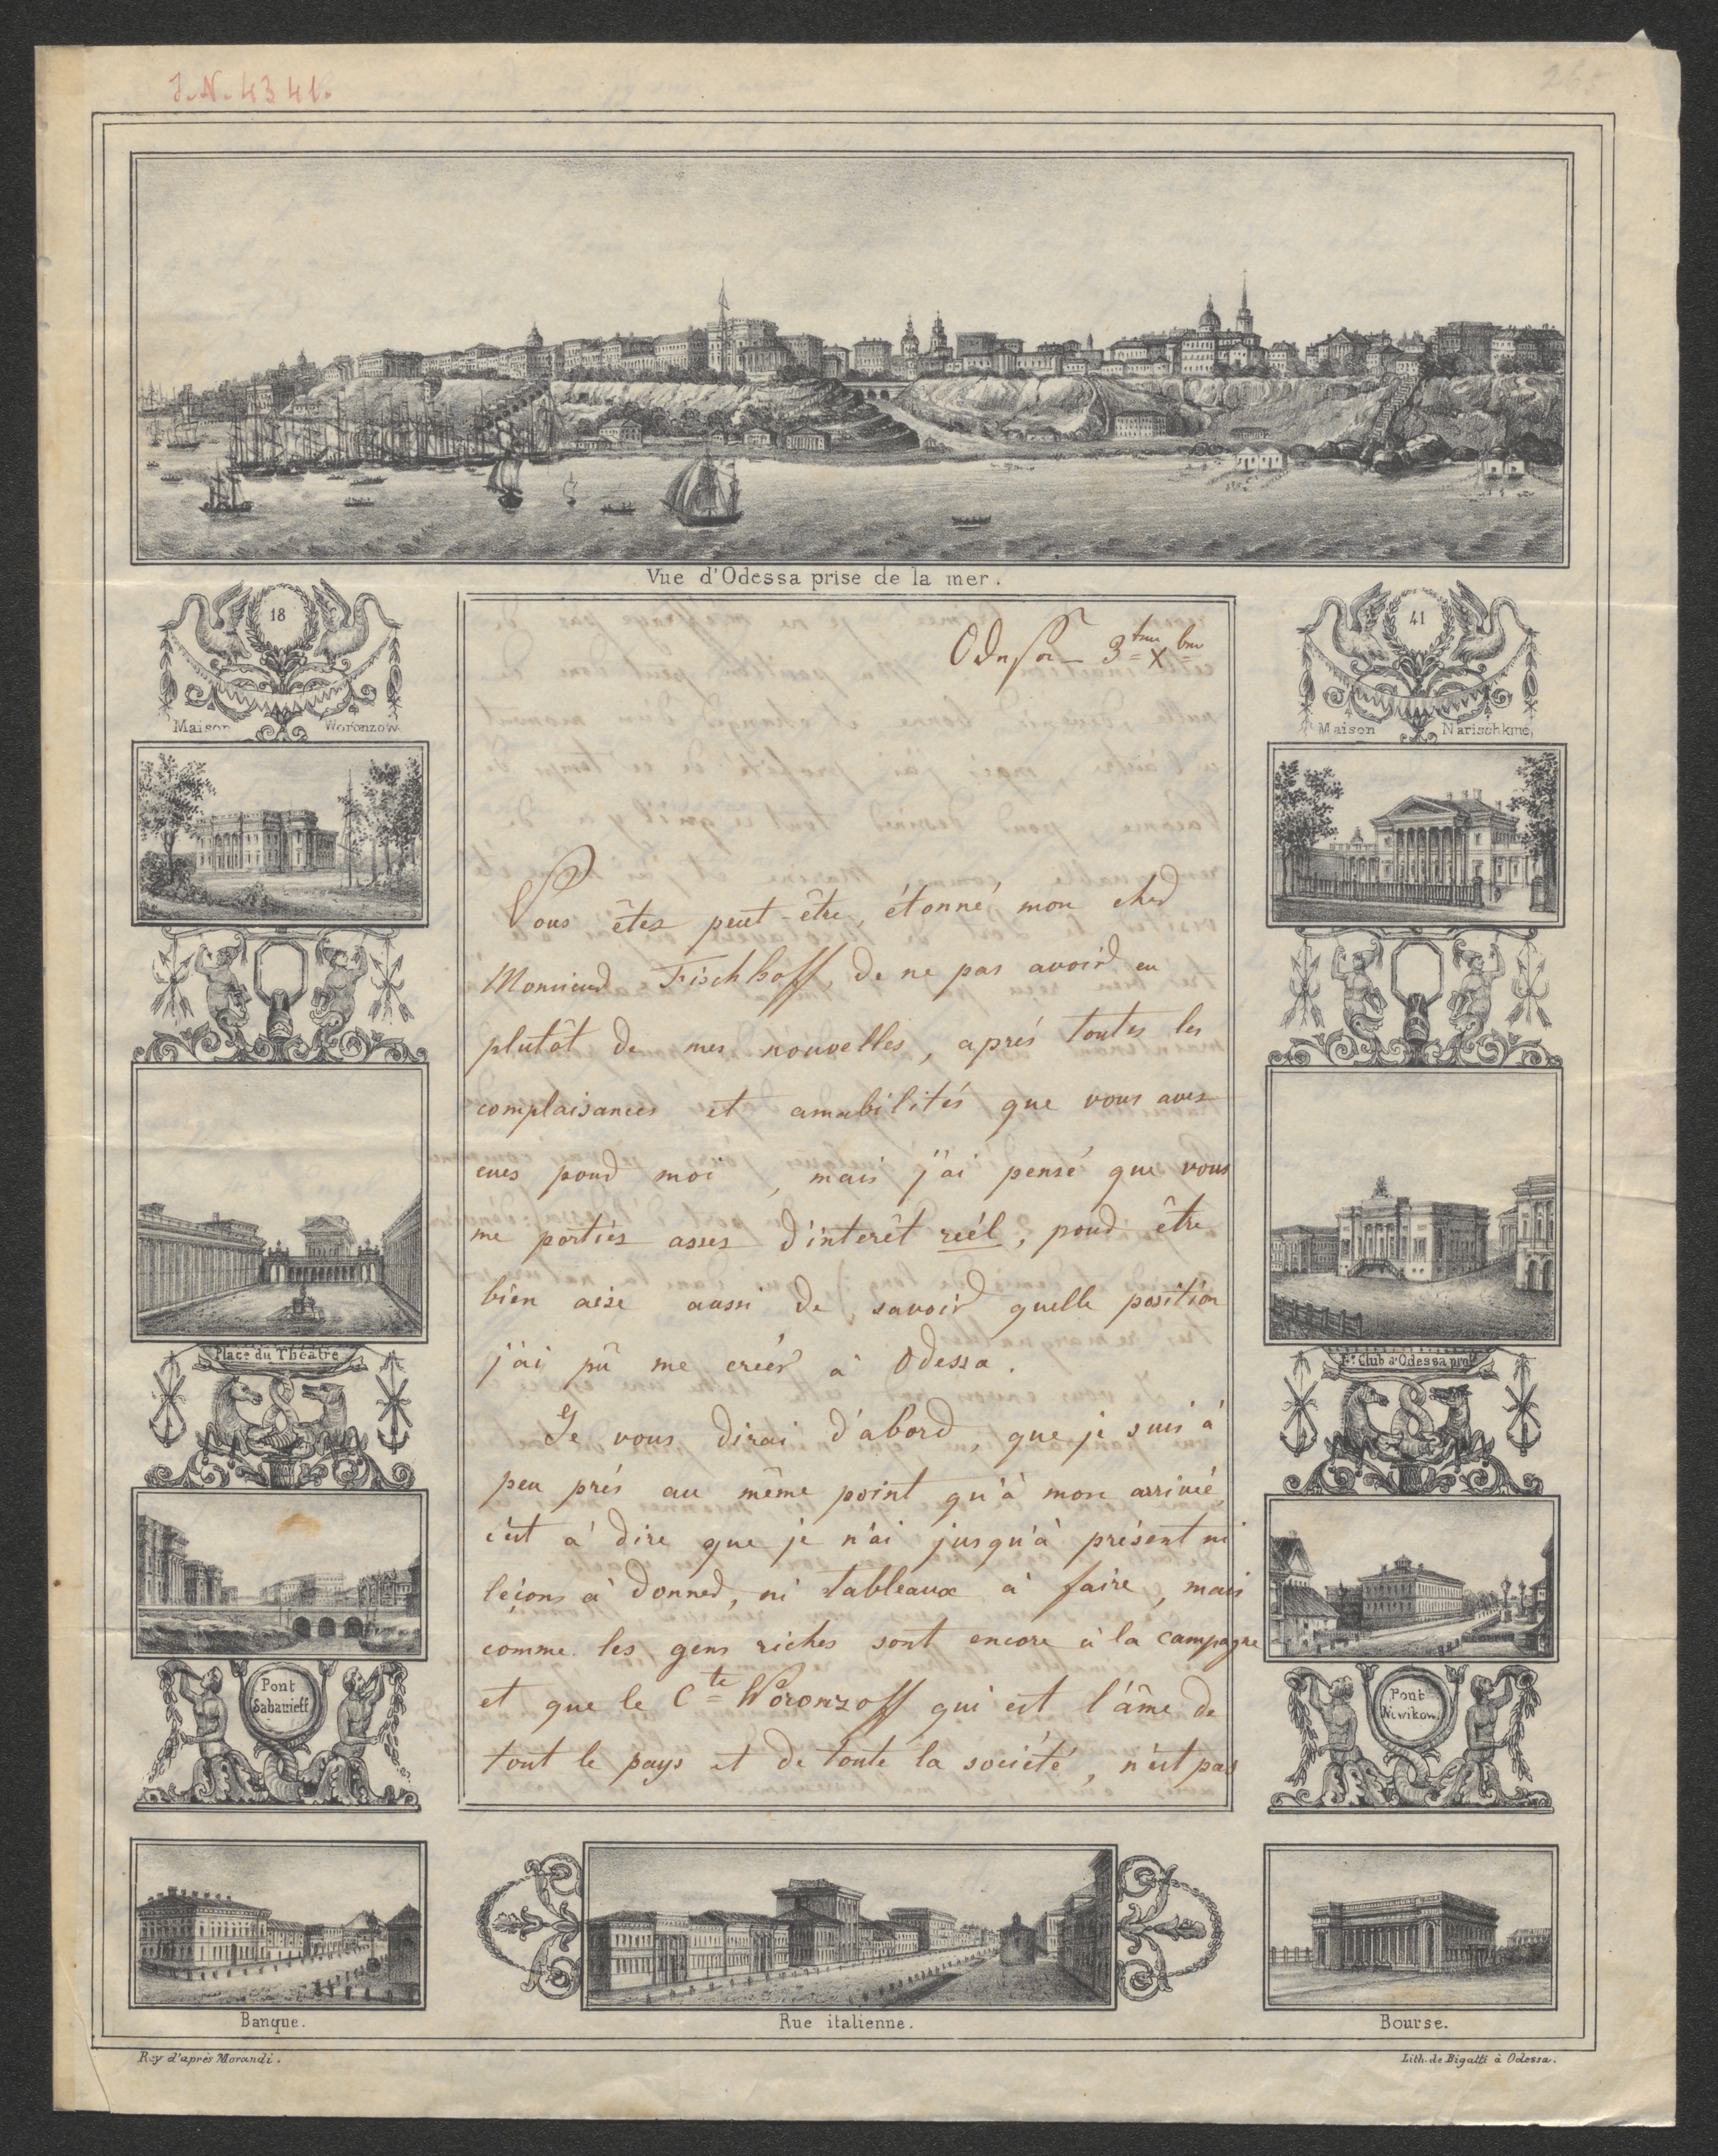 J.N. 4341.
Vue d'Odessa prise de la mer.
18
41
Maison Woronzow.
Maison Narischkine,
Odessa 3 tem X bre
Vous êtes peut-être, étonné mon cher
Monsieur Fischhoff, de ne pas avoir eu
plutôt de mes nouvelles, après toutes les
complaisances et amabilités que vous avez
eues pour moi, mais j'ai pensé que vous
me portiés assez d'interêt reél, pour être
bien aise aussi de savoir quelle position
j'ai pû me creér à Odessa.
Je vous dirai d'abord, que je suis à
peu près au même point qu'à mon arrivée,
c'est à dire que je n'ai jusqu'à présent ni
leçons à donner, ni tableaux à faire, mais
comme les gens riches sont encore à la campagne
et que le Cte Woronzoff qui est l'âme de
tout le pays et de toute la société, n'est pas
Place du Théâtre
Club d'Odessa
Pont
Sabanieff
Pont
Banque.
Rue italienne.
Bourse.
Rey d'après Morandi.
Lith. de Bigatti à Odessa.